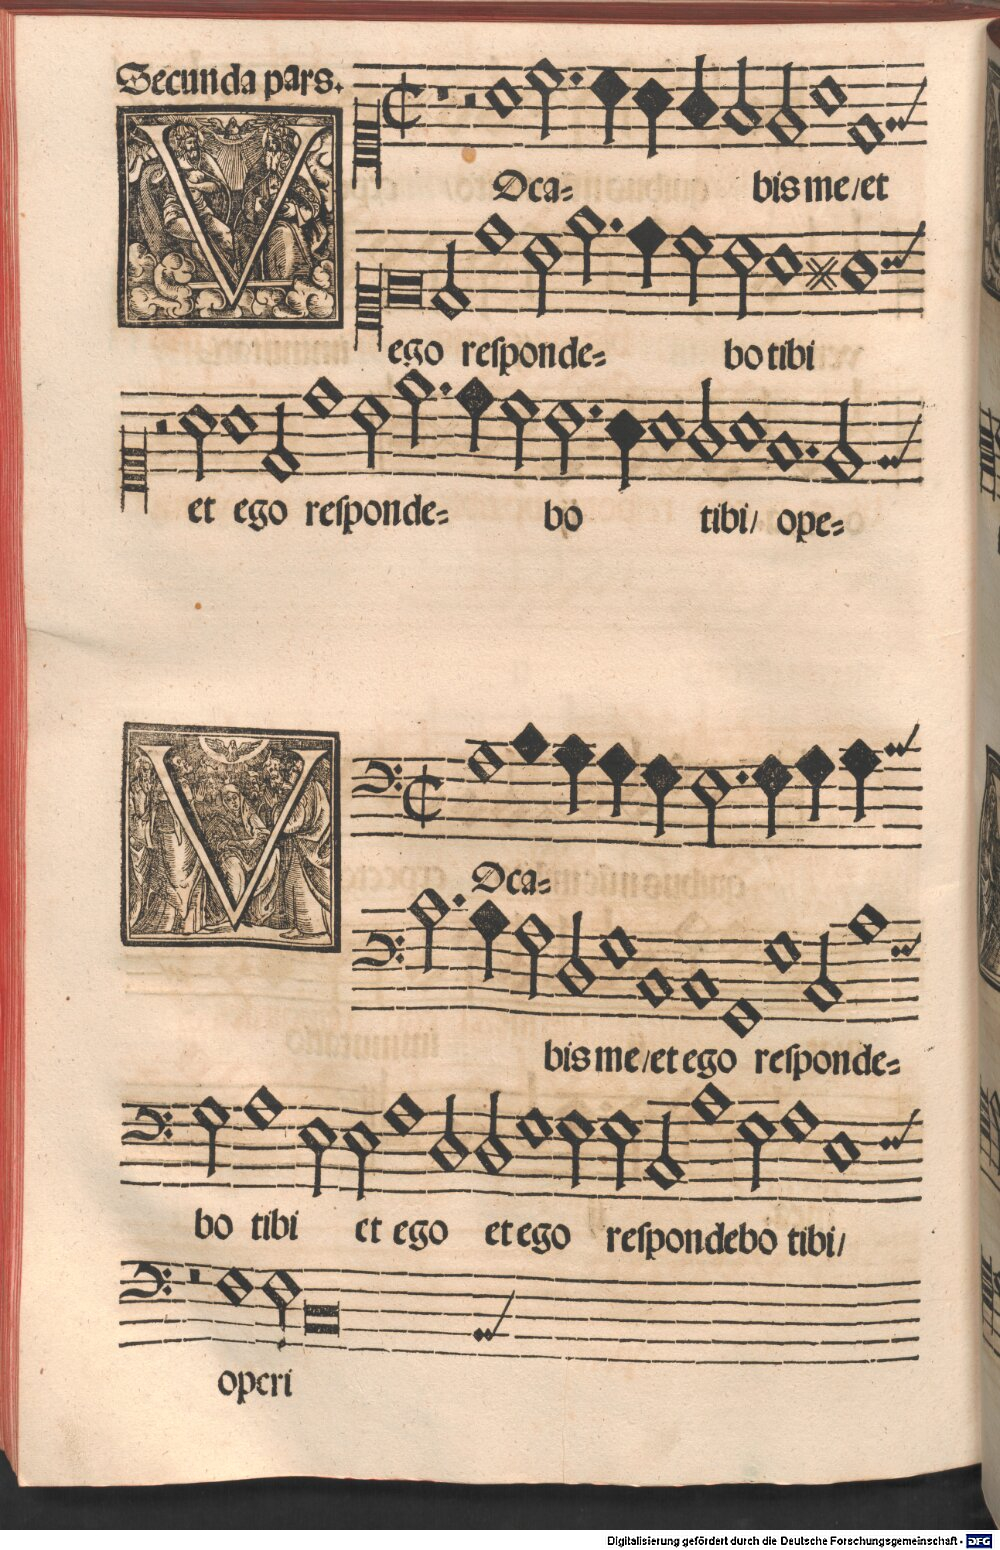 Secunda pars.
V
Oca- bis me/et
ego responde- bo tibi
et ego responde- bo tibi/ ope-
V
Oca-
bis me/et ego responde-
bo tibi et ego et ego respondebo tibi/
operi
Digitalisierung gefördert durch die Deutsche Forschungsgemeinschaft - DFG